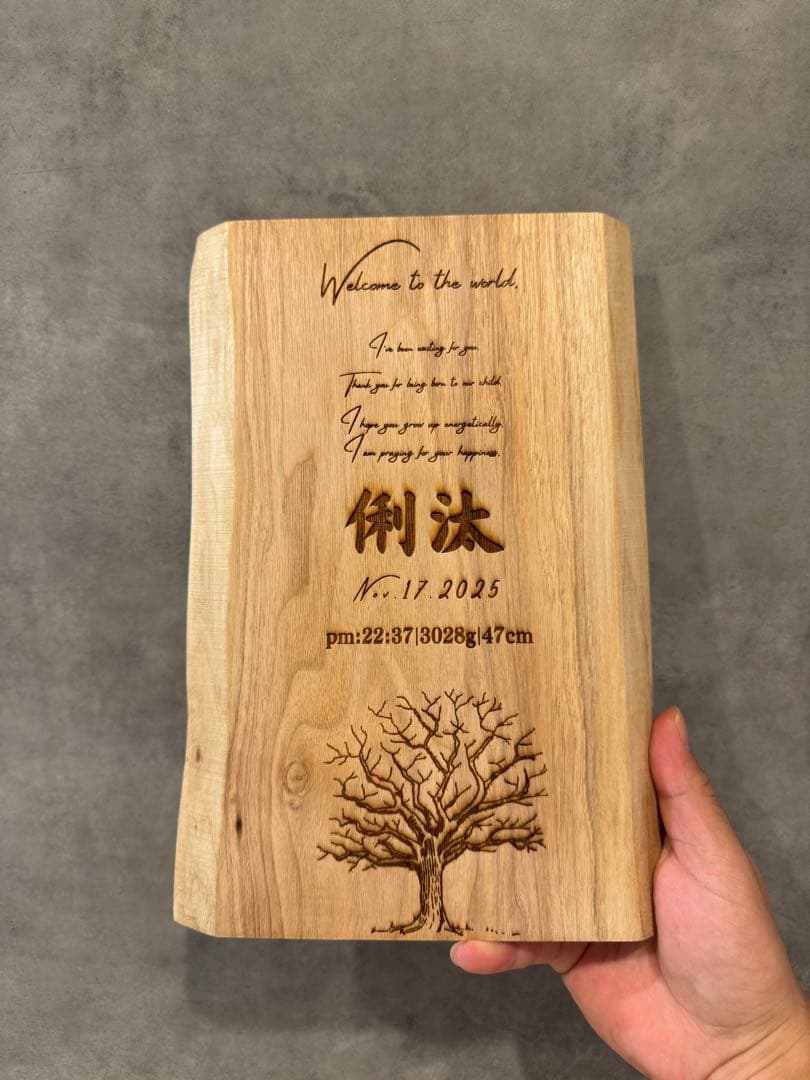 Welcome to the world.
I've been waiting for you.
Thank you for being born to our child.
I hope you grow up energetically.
I am praying for your happiness.
俐汰
Nov.17.2025
pm:22:37|3028g|47cm